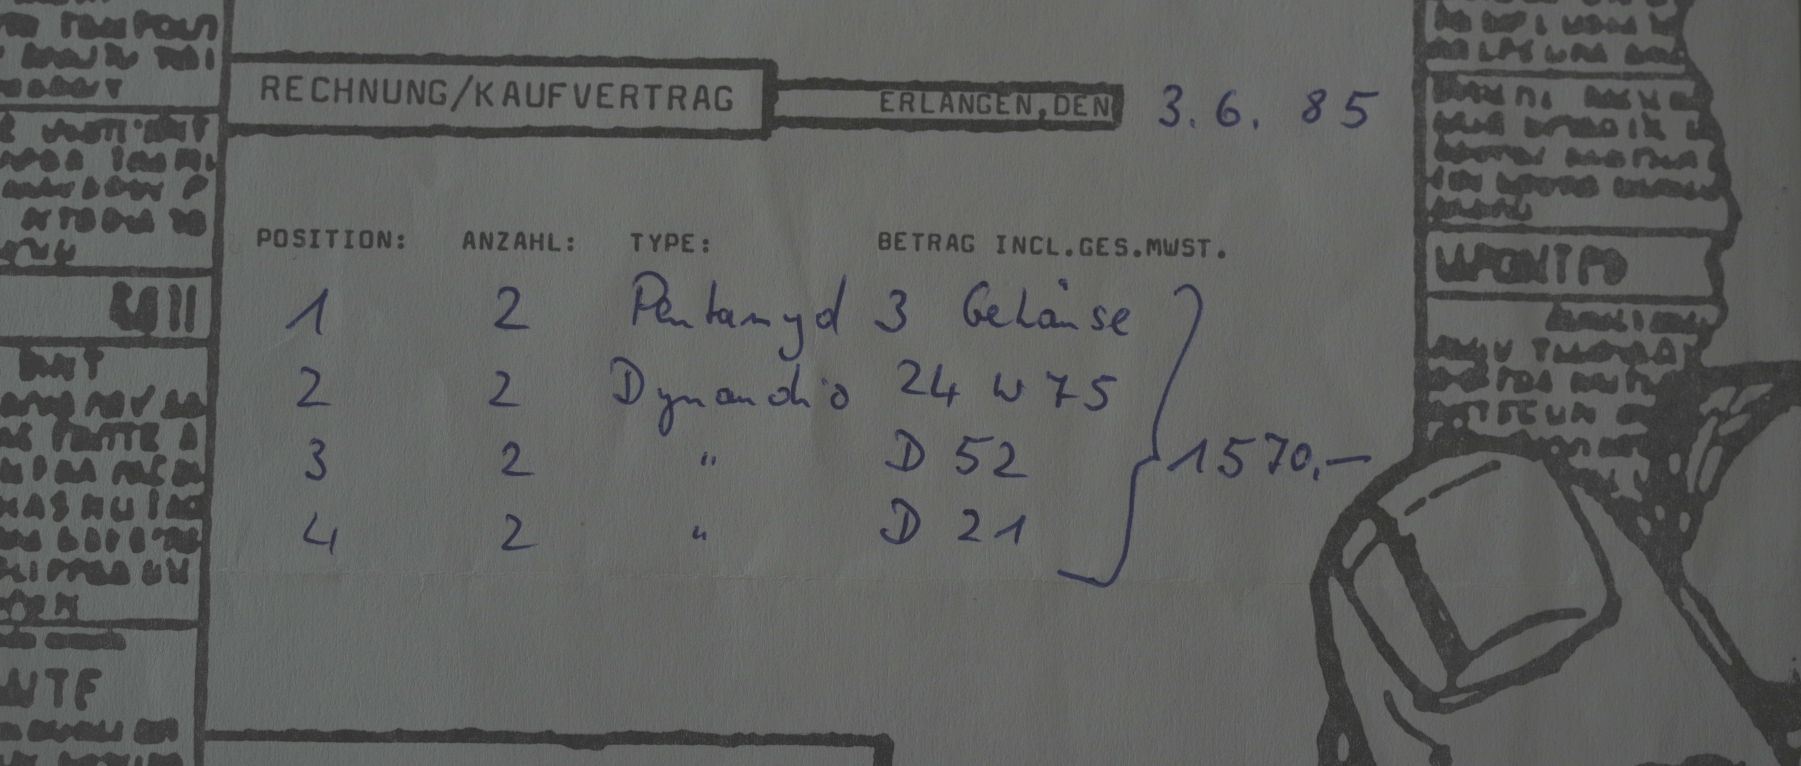 RECHNUNG/KAUFVERTRAG ERLANGEN,DEN 3.6.85
POSITION: ANZAHL: TYPE: BETRAG INCL.GES.MWST.
1 2 Pentamyd 3 Gehäuse
2 2 Dynaudio 24 W 75
3 2 " D 52 1570,—
4 2 " D 21